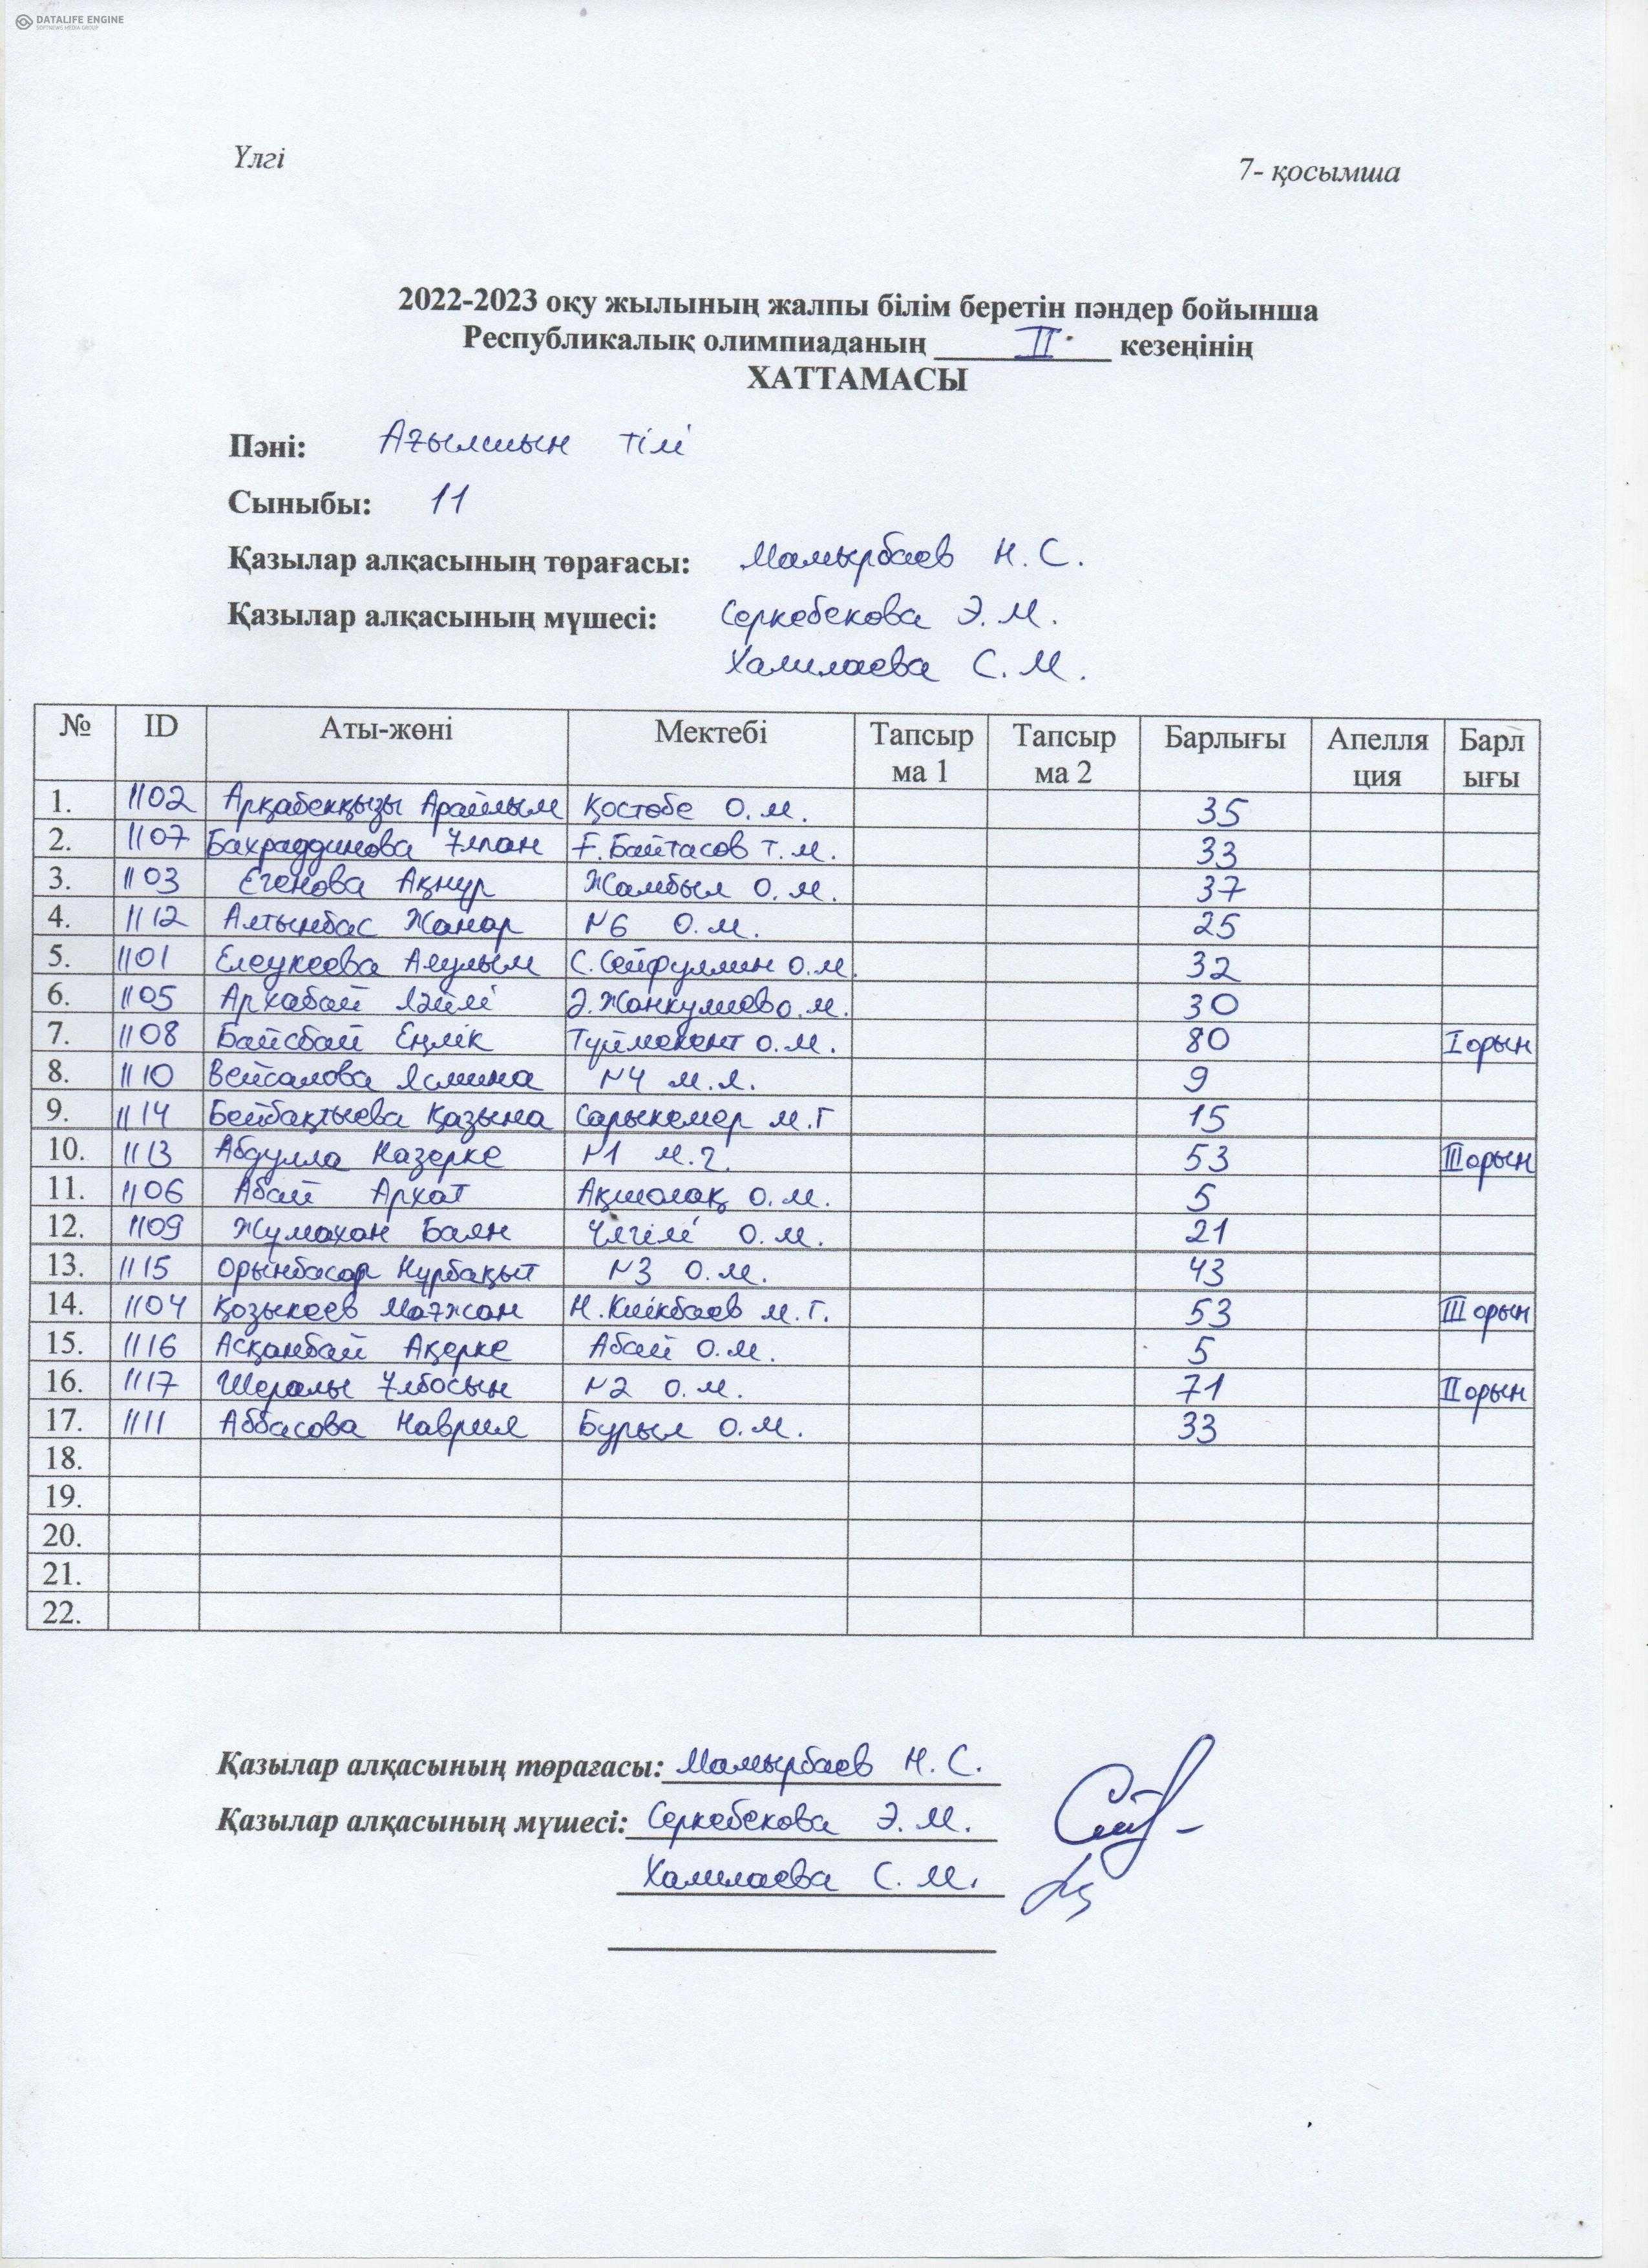 DATALIFE ENGINE
SOFTNEWS MEDIA GROUP
Үлгі
7- қосымша
2022-2023 оқу жылының жалпы білім беретін пәндер бойынша
Республикалық олимпиаданың II кезеңінің
ХАТТАМАСЫ
Пәні: Ағылшын тілі
Сыныбы: 11
Қазылар алқасының төрағасы: Мамырбаев Н.С.
Қазылар алқасының мүшесі: Серкебекова Э.М.
Халилаева С.М.
№ ID Аты-жөні Мектебі Тапсыр ма 1 Тапсыр ма 2 Барлығы Апелля ция Барл ығы
1. 1102 Арқабекқызы Арайлым Қостөбе О.м. 35
2. 1107 Бахраддинова Ұлпан Ғ.Байтасов т.м. 33
3. 1103 Егенова Ақнұр Жамбыл О.м. 37
4. 1112 Алтынбас Жанар N6 О.м. 25
5. 1101 Елеукеева Аяулым С.Сейфуллин О.м. 32
6. 1105 Архабай Ләйлі Ә.Жанкулиев О.м. 30
7. 1108 Байсбай Еңлік Түймекент О.м. 80 I орын
8. 1110 Вейсалова Ясмина N4 м.л. 9
9. 1114 Бейбақтыева Қазына Сарыкемер м.Г 15
10. 1113 Абдулла Назерке N1 м.г. 53 III орын
11. 1106 Абай Архат Ақшолақ О.м. 5
12. 1109 Жумахан Баян Үлгілі О.м. 21
13. 1115 Орынбасар Нұрбақыт N3 О.м. 43
14. 1104 Қозыкеев Мағжан Н.Киікбаев м.Г. 53 III орын
15. 1116 Асқанбай Ақерке Абай О.м. 5
16. 1117 Шералы Ұлбосын N2 О.м. 71 II орын
17. 1111 Аббасова Наврия Бурыл О.м. 33
18.
19.
20.
21.
22.
Қазылар алқасының төрағасы: Мамырбаев Н.С.
Қазылар алқасының мүшесі: Серкебекова Э.М.
Халилаева С.М.